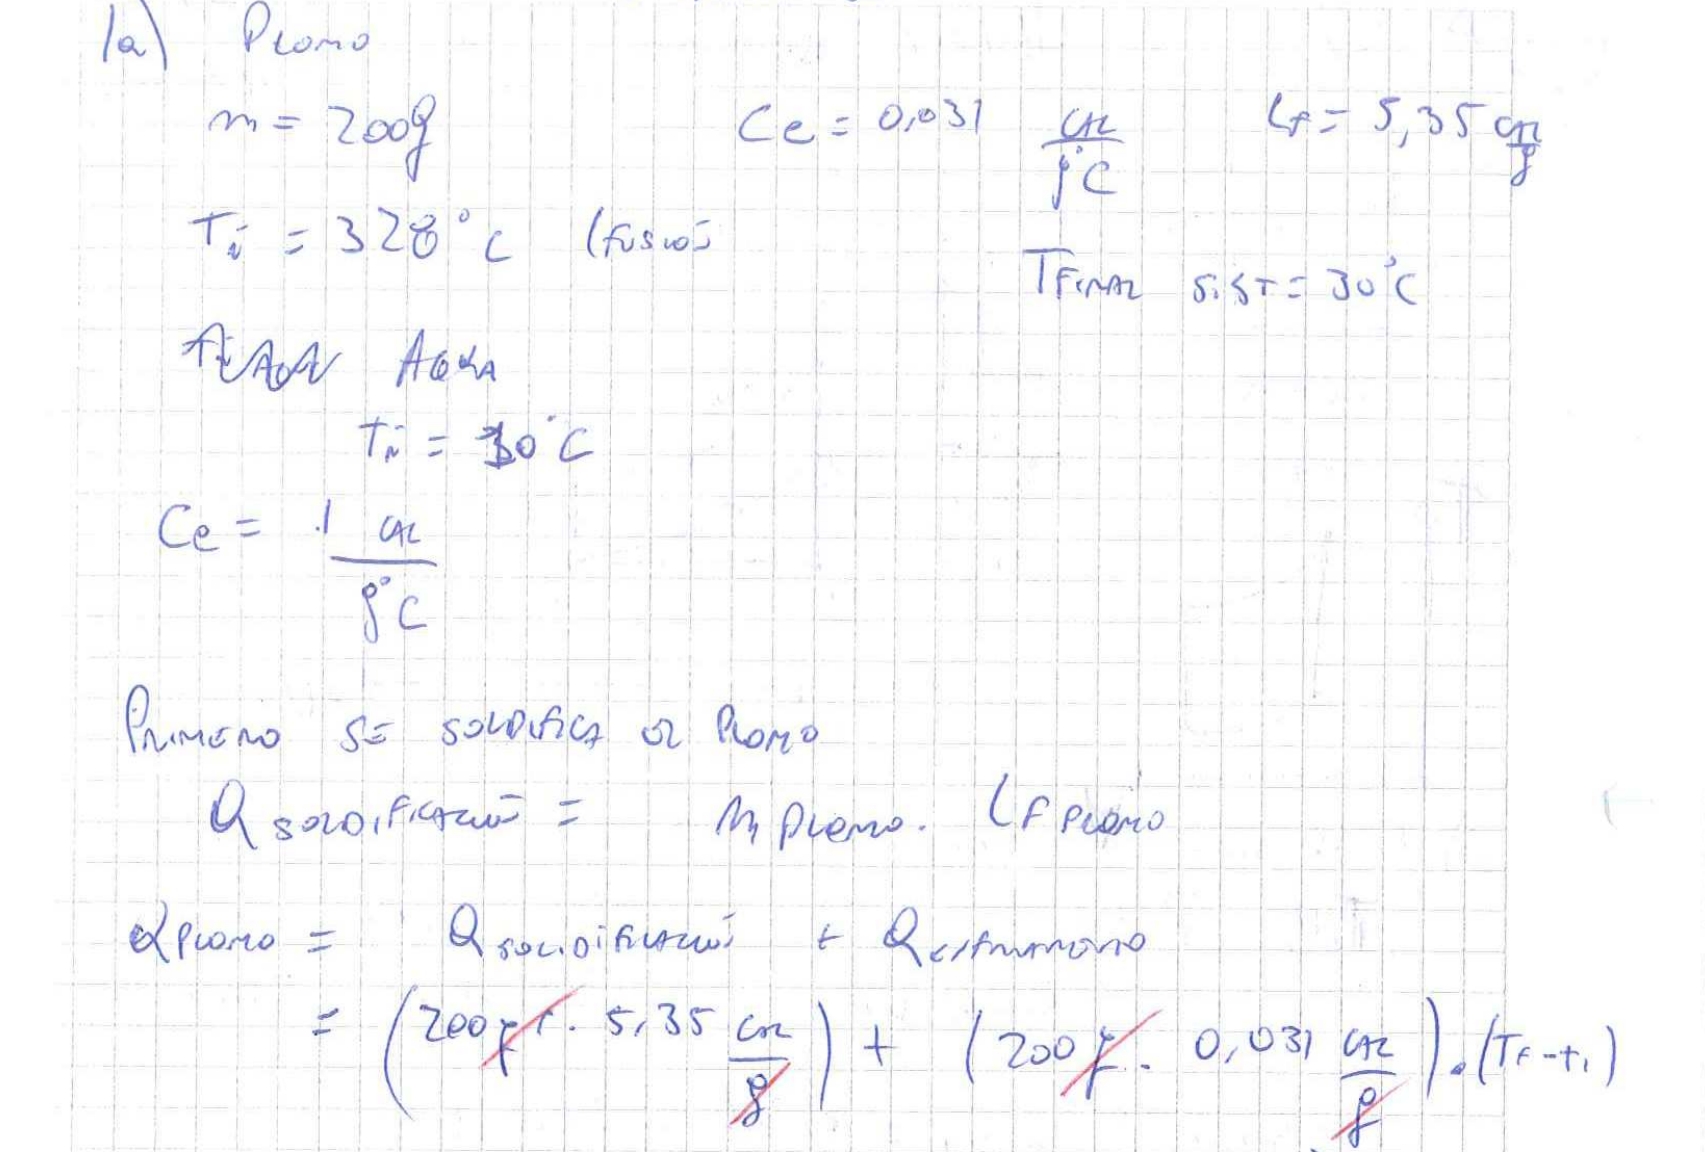 1a) Plomo
m = 200g Ce = 0,031 cal/g°C Lf = 5,35 cal/g
Ti = 328°C (fusión
TFINAL SIST = 30°C
AGUA
Ti = °C
Ce = 1 cal/g°C
PRIMERO SE SOLIDIFICA EL PLOMO
Q SOLIDIFICACIÓN = m PLOMO . LF PLOMO
Q PLOMO = Q SOLIDIFICACIÓN + Q ENFRIAMIENTO
= (200gr . 5,35 cal/g) + (200g . 0,031 cal/g) . (Tf - ti)